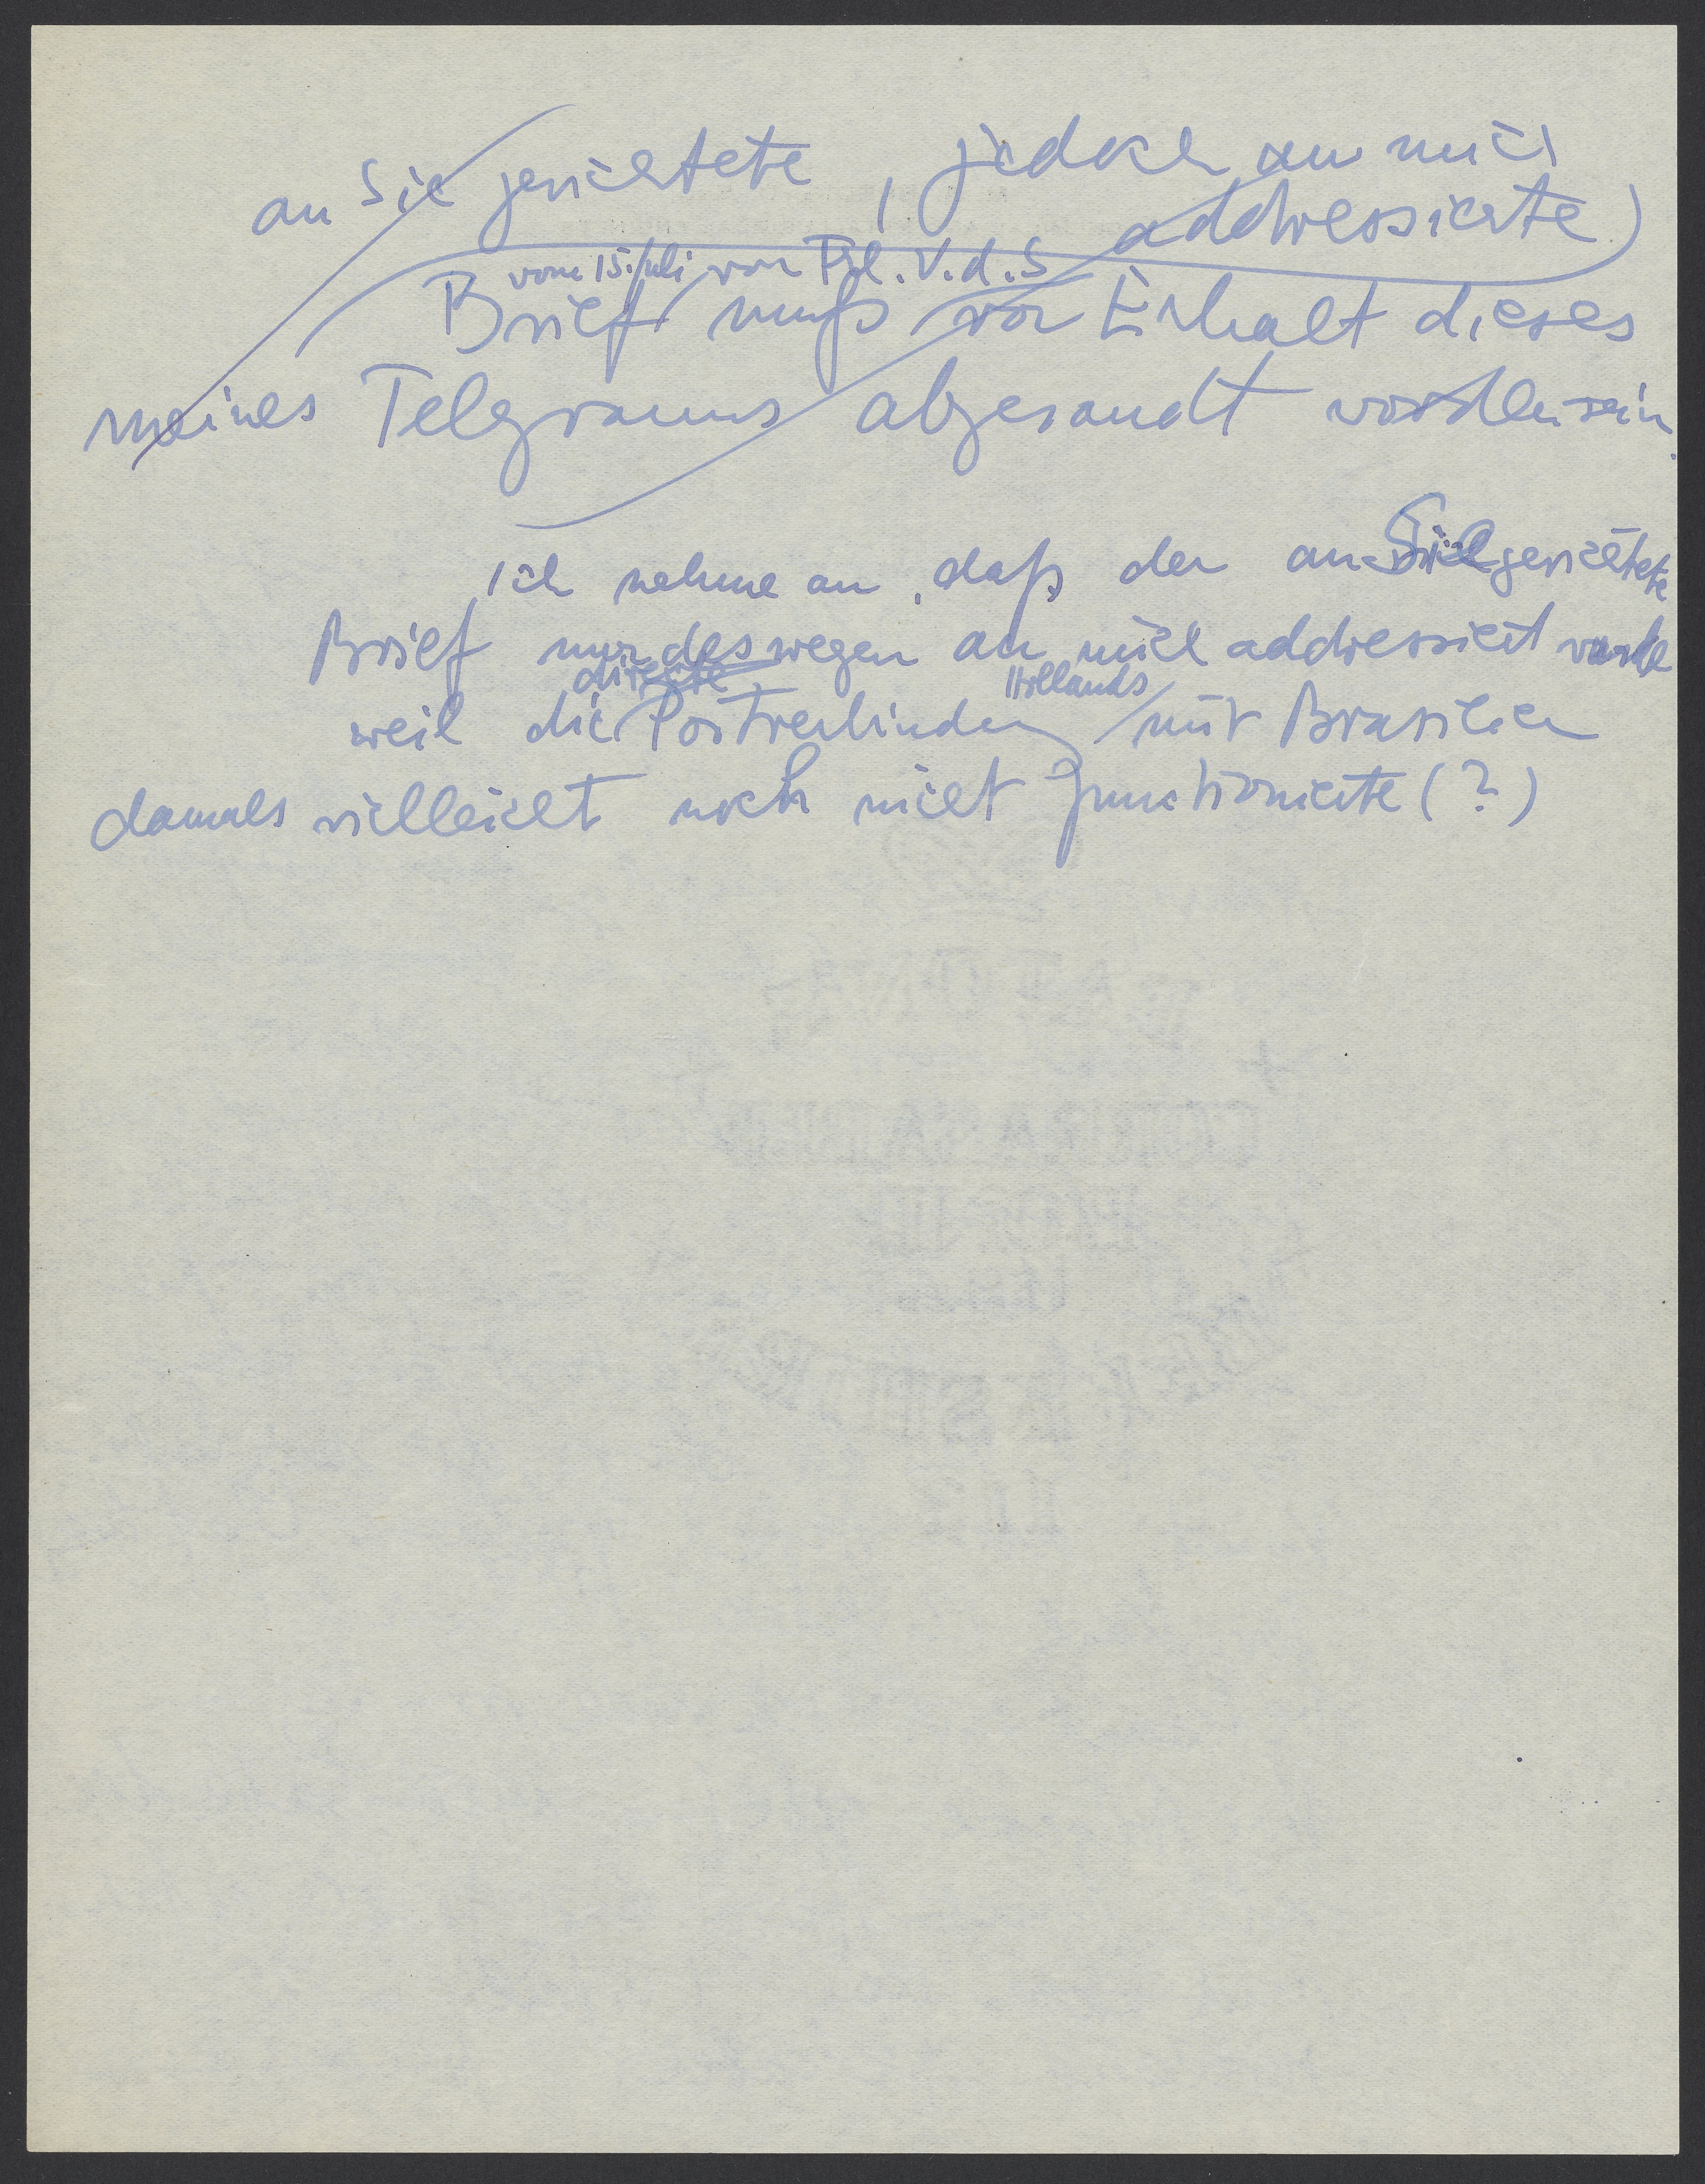 an Sie gerichtete, jedoch an mich
addressierte)
vom 15. Juli von Frl. V.d.S
Brief muß vor Erhalt dieses
meines Telegramms abgesandt worden sein.
Ich nehme an, daß der an Sie gerichtete
Brief nur deswegen an mich addressiert wurde
direkte Hollands
weil die Postverbindung mit Brasilien
damals vielleicht noch nicht funktionierte (?)